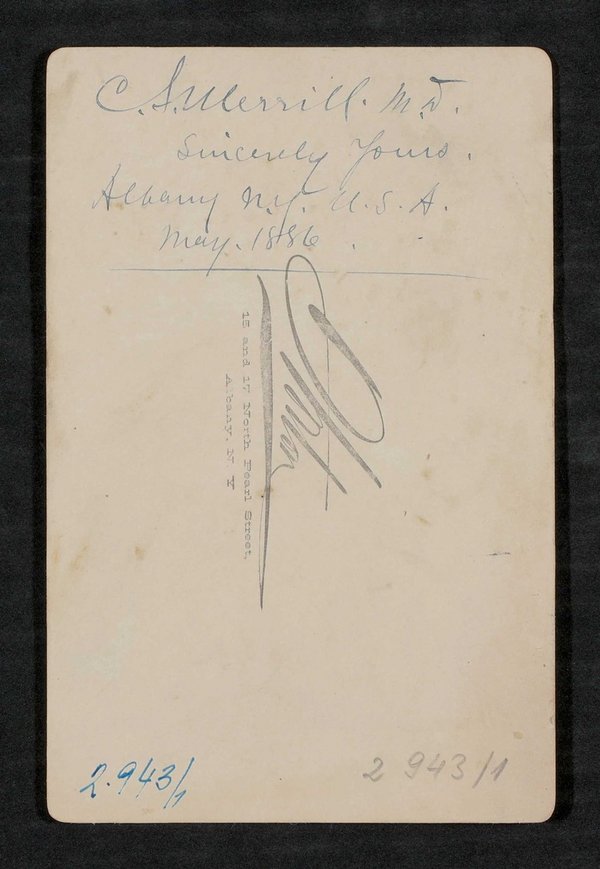 C. S. Merrill. M.D.
Sincerely Yours.
Albany N.Y. U.S.A.
May. 1886.
15 and 17 North Pearl Street.
Albany. N. Y
2.943/1
2 943/1